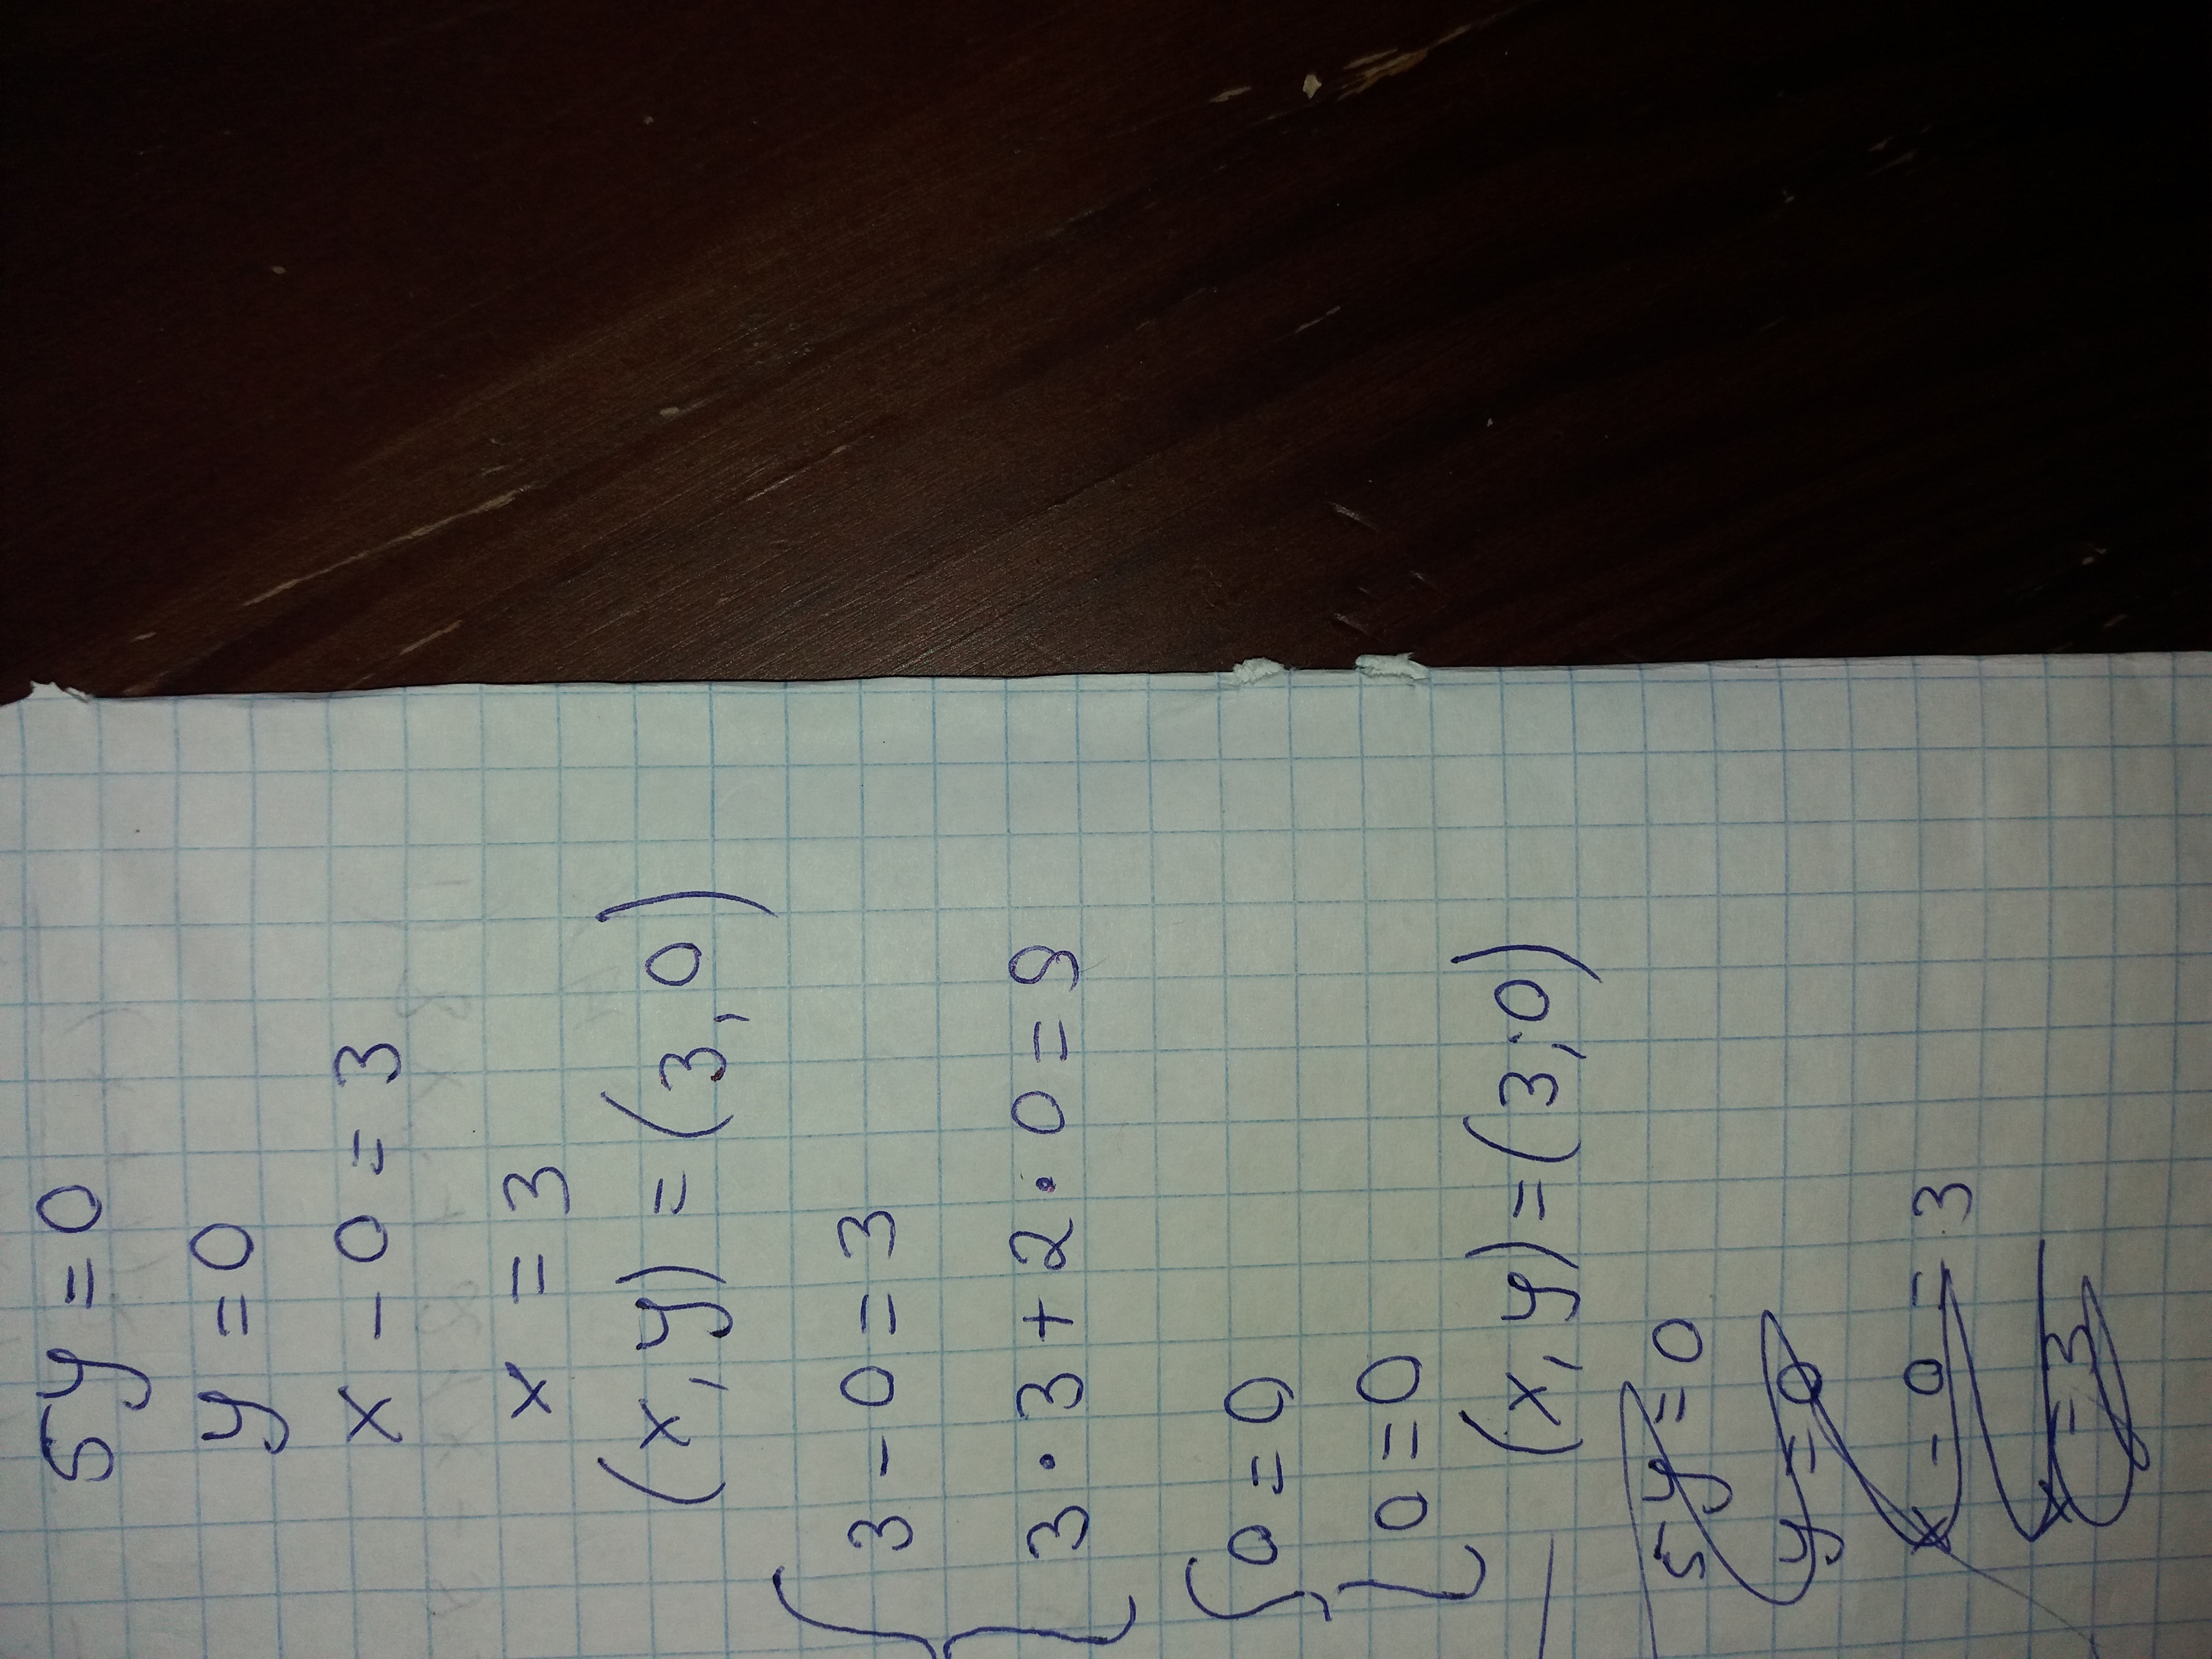 5y = 0
y = 0
x - 0 = 3
x = 3
(x, y) = (3, 0)
3 - 0 = 3
3 · 3 + 2 · 0 = 9
0 = 0
0 = 0
(x, y) = (3; 0)
5y = 0
y = 0
x - 0 = 3
x = 3